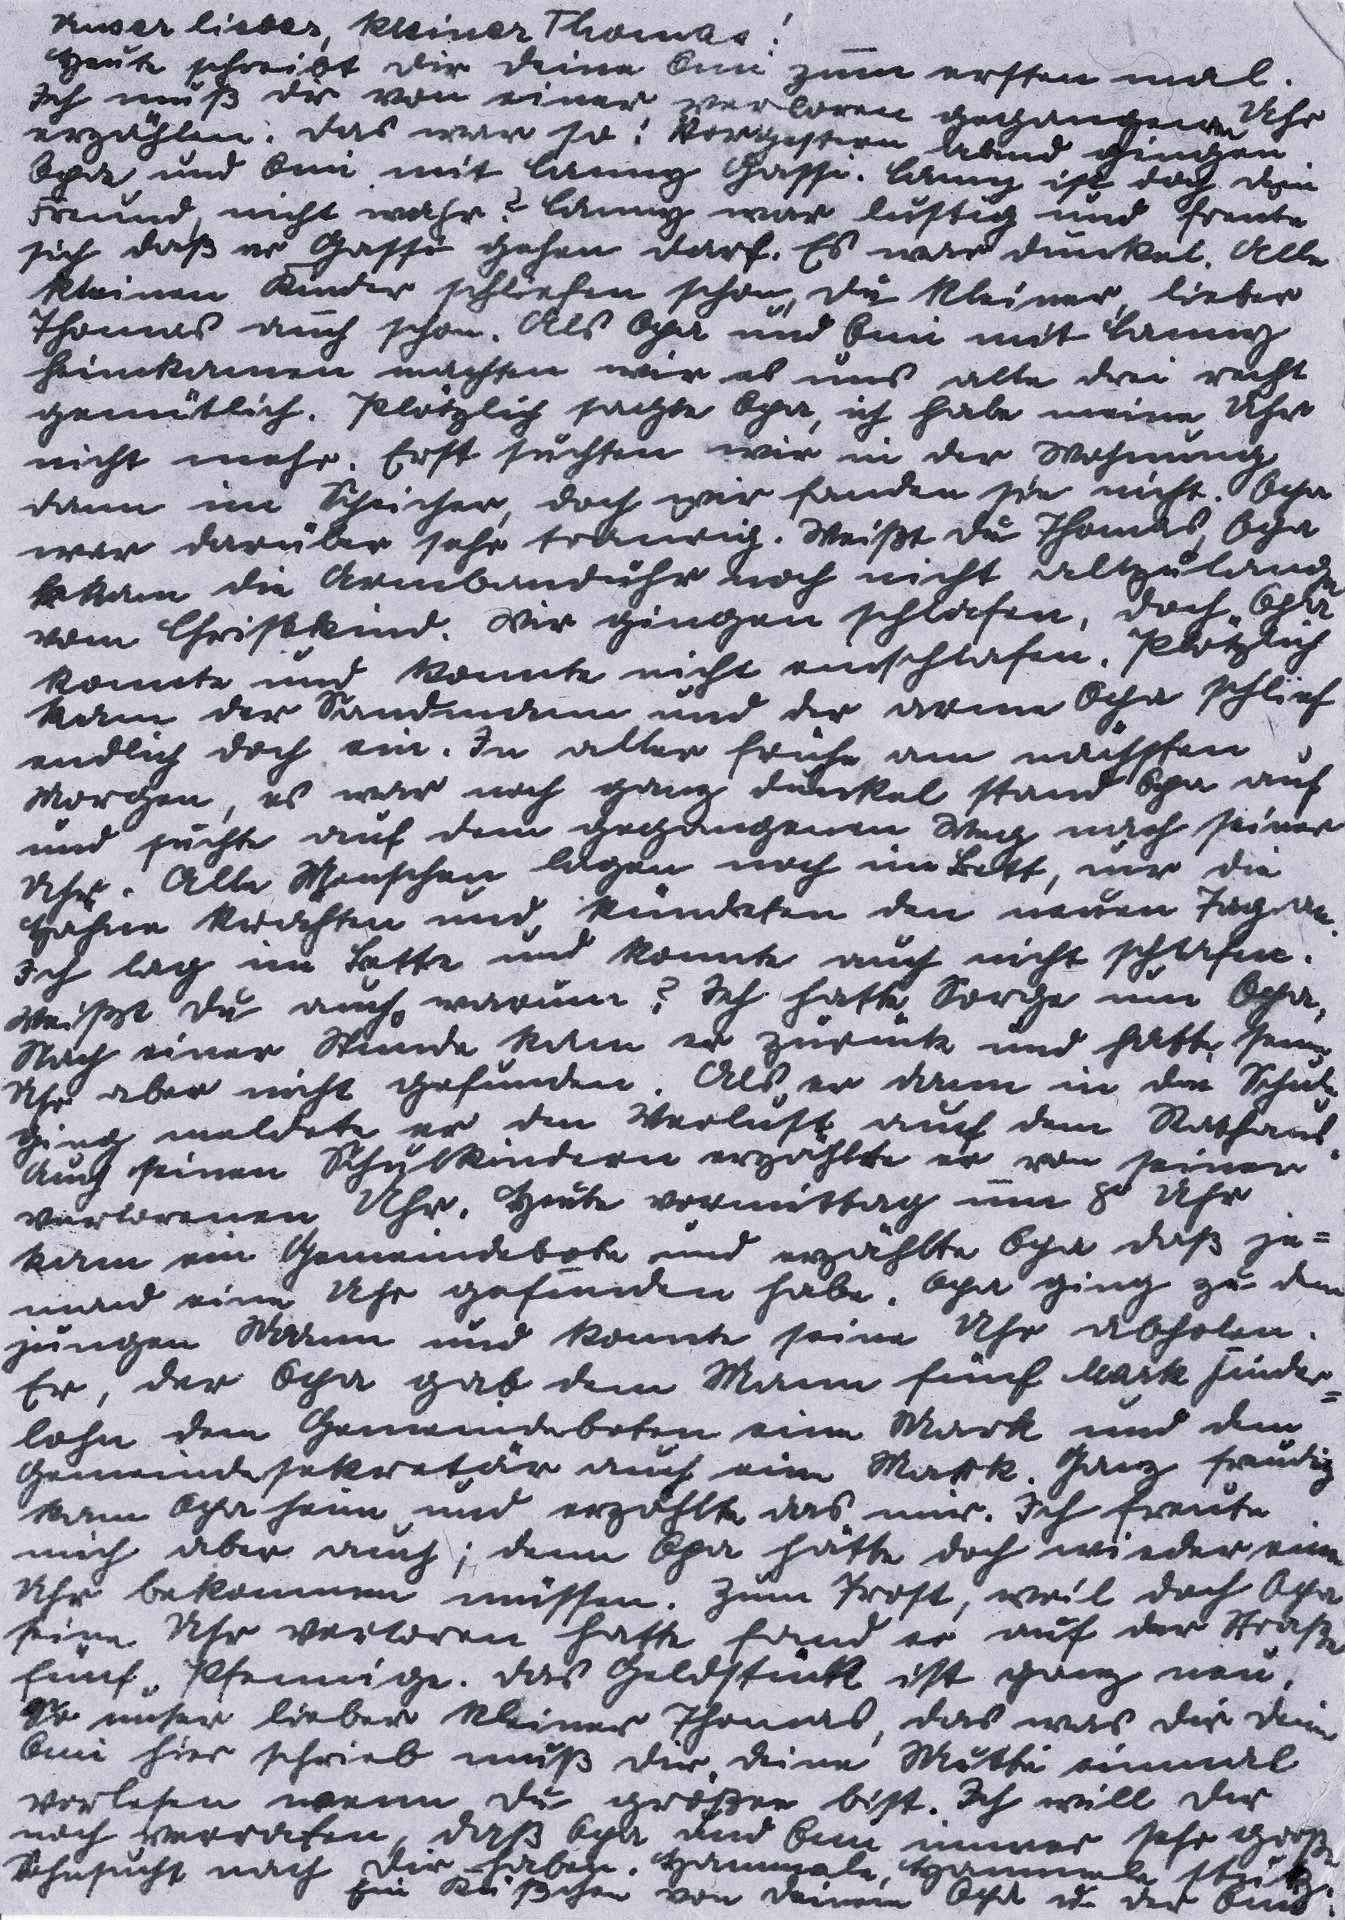 Unser lieber, kleiner Thomas!
Heute schreibt dir deine Omi zum ersten mal.
Ich muß dr von einer verloren gegangenen Uhr
erzählen. Das war so! Vorgestern abend gingen
Opa und Omi mit Lanny Gassi. Lanny ist doch dein
Freund, nicht wahr? Lanny war lustig und freute
sich daß er Gassi gehen darf. Es war dunkel. Alle
kleinen Kinder schliefen schon, du kleiner, lieber
Thomas auch schon. Als Opa und Omi mit Lanny
heimkamen machten wir es uns alle drei recht
gemütlich. Plötzlich sagte Opa, ich habe meine Uhr
nicht mehr. Erst suchten wir in der Wohnung
dann im Speicher, doch wir fanden sie nicht. Opa
war darüber sehr traurig. Weißt du Thomas, Opa
bekam die Armbanduhr noch nicht allzulange
vom Christkind. Wir gingen schlafen, doch Opa
konnte und konnte nicht einschlafen. Plötzlich
kam der Sandmann und der arme Opa schlief
endlich doch ein. In aller frühe am nächsten
Morgen, es war noch ganz dunkel stand Opa auf
und suchte auf dem gegangenen Weg nach seiner
Uhr. Alle Menschen lagen noch im Bett, nur die
Hähne krähten und kündeten den neuen Tag an.
Ich lag im Bette und konnte auch nicht schlafen.
Weißt du auch warum? Ich hatte Sorge um Opa.
Nach einer Stunde kam er zurück und hatte seine
Uhr aber nicht gefunden. Als er dann in die Schule
ging meldete er den Verlust auf dem Rathaus.
Auch seinen Schulkindern erzählte er von seiner
verlorenen Uhr. Heute vormittag um 8 Uhr
kam ein Gemeindebote und erzählte Opa daß je=
mand eine Uhr gefunden habe. Opa ging zu dem
jungen Mann und konnte seine Uhr abholen.
Er, der Opa gab dem Mann fünf Mark Finder=
lohn dem Gemeindeboten eine Mark und dem
Gemeindesekretär auch eine Mark. Ganz freudig
kam Opa heim und erzählte das mir. Ich freute
mich aber auch; denn Opa hätte doch wieder eine
Uhr bekommen müssen. Zum Trost, weil doch Opa
seine Uhr verloren hatte fand er auf der Straße
fünf Pfennige. Das Geldstück ist ganz neu.
So unser lieber kleiner Thomas, das was dir deine
Omi hier schrieb muß dir deine Mutti einmal
vorlesen wenn du größer bist. Ich will dir
noch verraten, daß Opa und Omi immer sehr große
Sehnsucht nach dir haben. Hammele, Hammele
Ein Küßchen von deinem Opa u. der Omi.